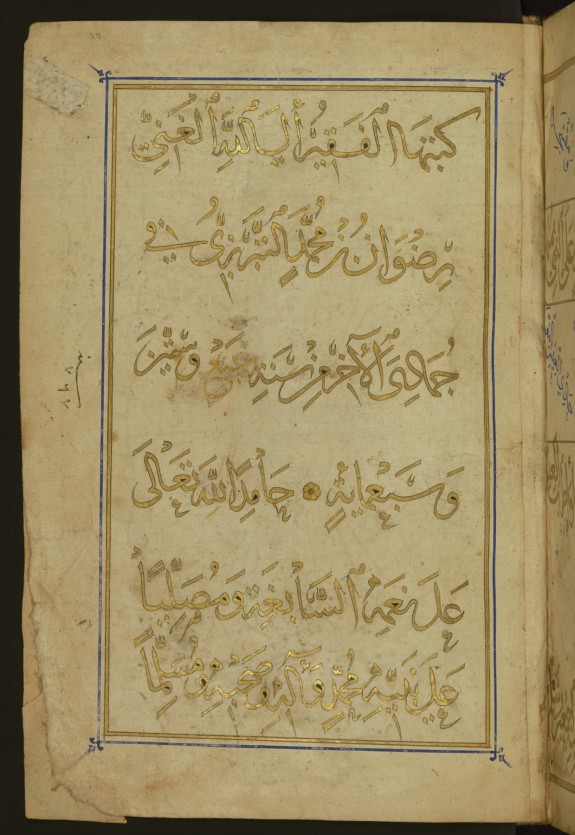 كتبها الفقير إلى الله الغني
رضوان بن محمد التبريزي في
جمادى الآخر من سنة وستين
وسبعمائة حامدا لله تعالى
على نعمه السابغة ومصليا
على نبيه محمد وآله وصحبه ومسلما